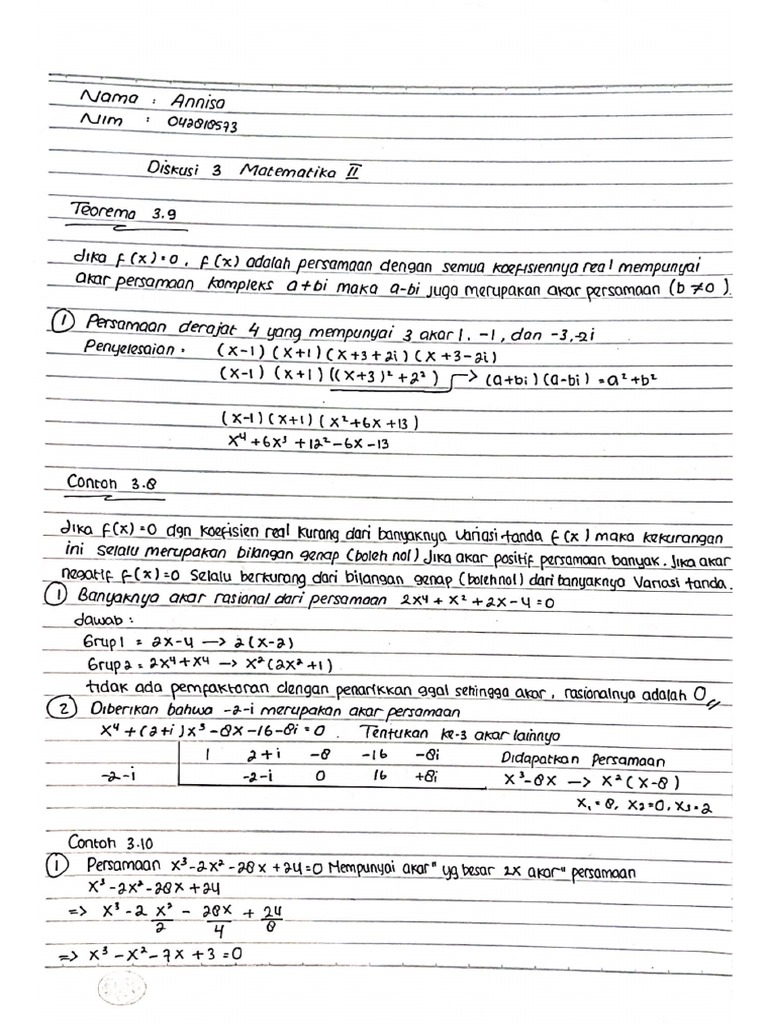 Nama : Annisa
Nim : 042818573
Diskusi 3 Matematika II
Teorema 3.9
Jika f(x)=0, f(x) adalah persamaan dengan semua koefisiennya real mempunyai
akar persamaan kompleks a+bi maka a-bi juga merupakan akar persamaan (b ≠0).
① Persamaan derajat 4 yang mempunyai 3 akar 1, -1, dan -3,-2i
Penyelesaian : (x-1) (x+1) (x+3+2i) (x+3-2i)
(x-1) (x+1) ((x+3)² + 2²) → (a+bi) (a-bi) = a² + b²
(x-1) (x+1) (x²+6x+13)
x⁴ + 6x³ + 12² - 6x - 13
Contoh 3.8
Jika f(x) = 0 dgn koefisien real kurang dari banyaknya variasi tanda f(x) maka kekurangan
ini selalu merupakan bilangan genap (boleh nol) Jika akar positif persamaan banyak. Jika akar
negatif f(x)=0 selalu berkurang dari bilangan genap (boleh nol) dari banyaknya variasi tanda.
① Banyaknya akar rasional dari persamaan 2x⁴ + x² + 2x - 4 = 0
Jawab :
Grup 1 = 2x-4 → 2(x-2)
Grup 2 = 2x⁴ + x⁴ → x²(2x²+1)
tidak ada pemfaktoran dengan penarikkan ggal sehingga akar, rasionalnya adalah 0
② Diberikan bahwa -2-i merupakan akar persamaan
x⁴ + (2+i)x³ - 8x - 16 - 8i = 0. Tentukan ke-3 akar lainnya
1 2+i -8 -16 -8i Didapatkan Persamaan
-2-i -2-i 0 16 +8i x³-8x → x²(x-8)
x₁ = 8, x₂=0, x₃=2
Contoh 3.10
① Persamaan x³-2x²-28x+24=0 Mempunyai akar" yg besar 2x akar" persamaan
x³-2x²-28x+24
=> x³-2 x²/2 - 28x/4 + 24/8
=> x³ - x² - 7x + 3 = 0